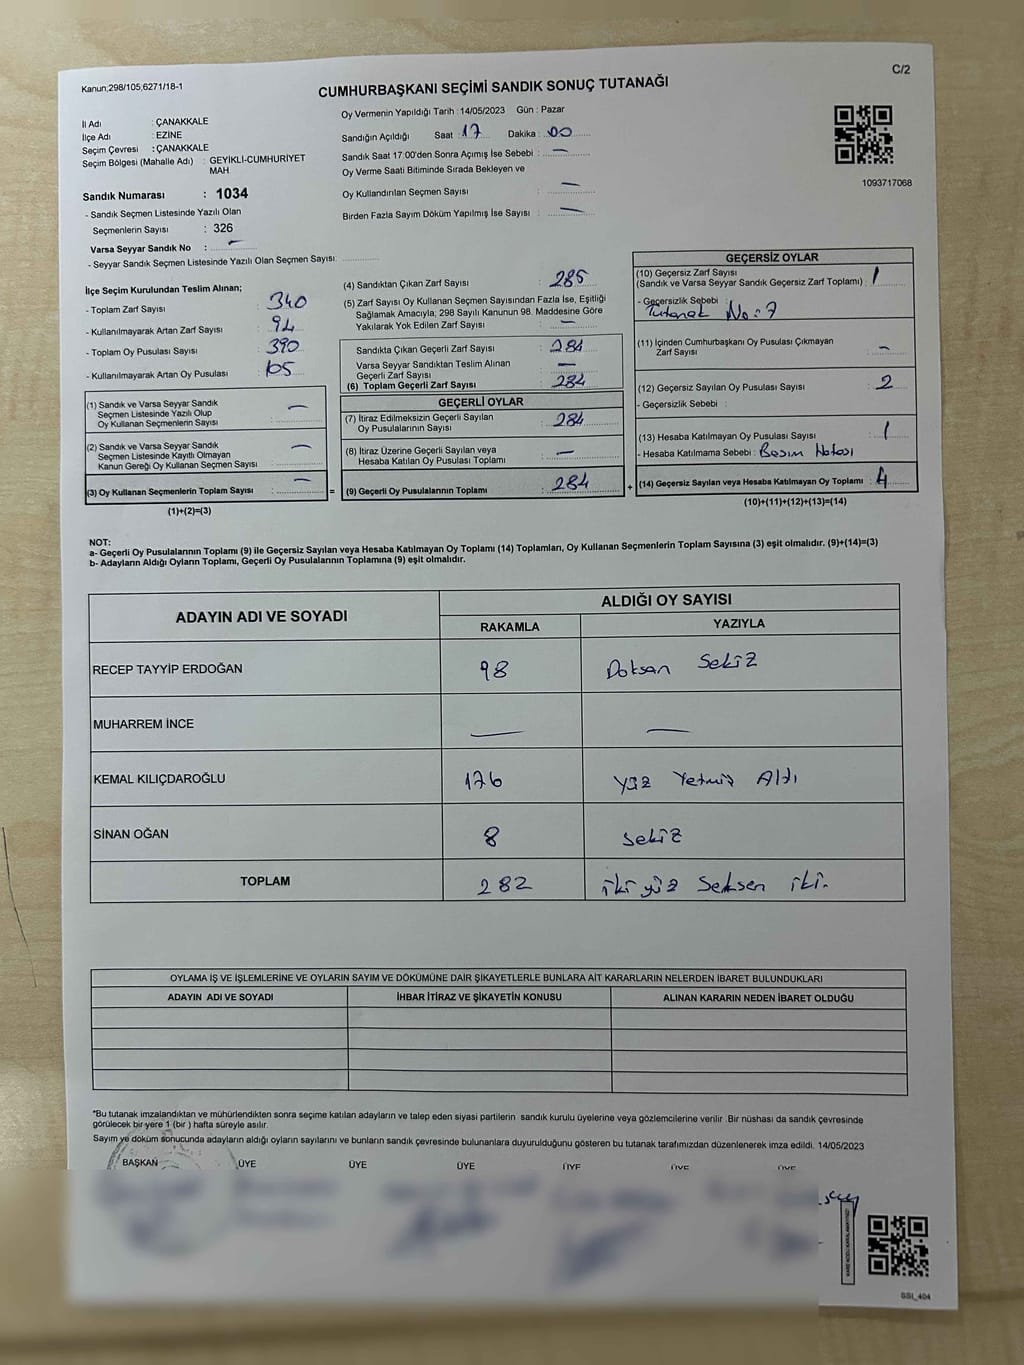 C/2
Kanun;298/105,6271/18-1
CUMHURBAŞKANI SEÇİMİ SANDIK SONUÇ TUTANAĞI
İl Adı : ÇANAKKALE
İlçe Adı : EZİNE
Seçim Çevresi : ÇANAKKALE
Seçim Bölgesi (Mahalle Adı) : GEYİKLİ-CUMHURİYET
MAH
Sandık Numarası : 1034
- Sandık Seçmen Listesinde Yazılı Olan
Seçmenlerin Sayısı : 326
Varsa Seyyar Sandık No : –
- Seyyar Sandık Seçmen Listesinde Yazılı Olan Seçmen Sayısı:
Oy Vermenin Yapıldığı Tarih : 14/05/2023 Gün : Pazar
Sandığın Açıldığı Saat : 17 Dakika : 00
Sandık Saat 17:00'den Sonra Açımış İse Sebebi : –
Oy Verme Saati Bitiminde Sırada Bekleyen ve
Oy Kullandırılan Seçmen Sayısı : –
Birden Fazla Sayım Döküm Yapılmış İse Sayısı : –
1093717068
İlçe Seçim Kurulundan Teslim Alınan;
- Toplam Zarf Sayısı : 340
- Kullanılmayarak Artan Zarf Sayısı : 94
- Toplam Oy Pusulası Sayısı : 390
- Kullanılmayarak Artan Oy Pusulası : 105
(1) Sandık ve Varsa Seyyar Sandık
Seçmen Listesinde Yazılı Olup
Oy Kullanan Seçmenlerin Sayısı : –
(2) Sandık ve Varsa Seyyar Sandık
Seçmen Listesinde Kayıtlı Olmayan
Kanun Gereği Oy Kullanan Seçmen Sayısı : –
(3) Oy Kullanan Seçmenlerin Toplam Sayısı : – =
(1)+(2)=(3)
(4) Sandıktan Çıkan Zarf Sayısı : 285
(5) Zarf Sayısı Oy Kullanan Seçmen Sayısından Fazla İse, Eşitliği
Sağlamak Amacıyla, 298 Sayılı Kanunun 98. Maddesine Göre
Yakılarak Yok Edilen Zarf Sayısı : –
Sandıkta Çıkan Geçerli Zarf Sayısı : 284
Varsa Seyyar Sandıktan Teslim Alınan
Geçerli Zarf Sayısı : –
(6) Toplam Geçerli Zarf Sayısı : 284
GEÇERLİ OYLAR
(7) İtiraz Edilmeksizin Geçerli Sayılan
Oy Pusulalarının Sayısı : 284
(8) İtiraz Üzerine Geçerli Sayılan veya
Hesaba Katılan Oy Pusulası Toplamı : –
(9) Geçerli Oy Pusulalarının Toplamı : 284 +
GEÇERSİZ OYLAR
(10) Geçersiz Zarf Sayısı
(Sandık ve Varsa Seyyar Sandık Geçersiz Zarf Toplamı) : 1
- Geçersizlik Sebebi :
Tutanak No:7
(11) İçinden Cumhurbaşkanı Oy Pusulası Çıkmayan
Zarf Sayısı : –
(12) Geçersiz Sayılan Oy Pusulası Sayısı : 2
- Geçersizlik Sebebi :
(13) Hesaba Katılmayan Oy Pusulası Sayısı : 1
- Hesaba Katılmama Sebebi : Basım Hatası
(14) Geçersiz Sayılan veya Hesaba Katılmayan Oy Toplamı : 4
(10)+(11)+(12)+(13)=(14)
NOT:
a- Geçerli Oy Pusulalarının Toplamı (9) ile Geçersiz Sayılan veya Hesaba Katılmayan Oy Toplamı (14) Toplamları, Oy Kullanan Seçmenlerin Toplam Sayısına (3) eşit olmalıdır. (9)+(14)=(3)
b- Adayların Aldığı Oyların Toplamı, Geçerli Oy Pusulalarının Toplamına (9) eşit olmalıdır.
ADAYIN ADI VE SOYADI ALDIĞI OY SAYISI
RAKAMLA YAZIYLA
RECEP TAYYİP ERDOĞAN 98 Doksan Sekiz
MUHARREM İNCE – –
KEMAL KILIÇDAROĞLU 176 Yüz Yetmiş Altı
SİNAN OĞAN 8 Sekiz
TOPLAM 282 iki yüz Seksen iki.
OYLAMA İŞ VE İŞLEMLERİNE VE OYLARIN SAYIM VE DÖKÜMÜNE DAİR ŞİKAYETLERLE BUNLARA AİT KARARLARIN NELERDEN İBARET BULUNDUKLARI
ADAYIN ADI VE SOYADI İHBAR İTİRAZ VE ŞİKAYETİN KONUSU ALINAN KARARIN NEDEN İBARET OLDUĞU
*Bu tutanak imzalandıktan ve mühürlendikten sonra seçime katılan adayların ve talep eden siyasi partilerin sandık kurulu üyelerine veya gözlemcilerine verilir. Bir nüshası da sandık çevresinde
görülecek bir yere 1 (bir ) hafta süreyle asılır.
Sayım ve döküm sonucunda adayların aldığı oyların sayılarını ve bunların sandık çevresinde bulunanlara duyurulduğunu gösteren bu tutanak tarafımızdan düzenlenerek imza edildi. 14/05/2023
BAŞKAN ÜYE ÜYE ÜYE ÜYE ÜYE ÜYE
SSI_404